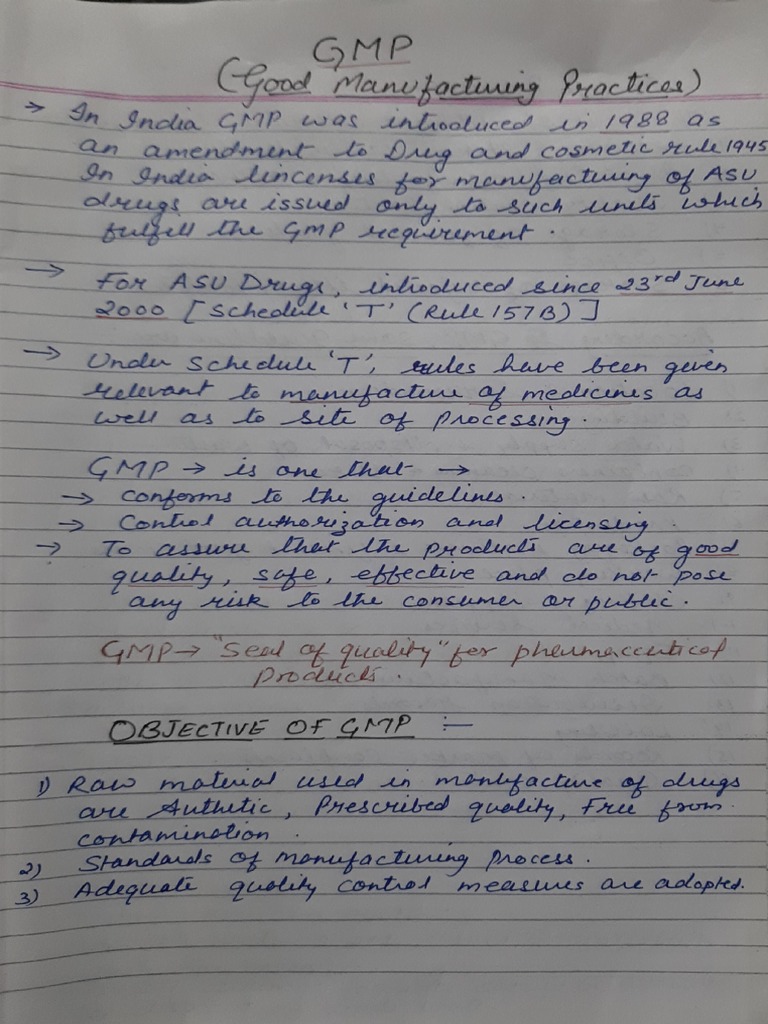 GMP
(Good Manufacturing Practices)
→ In India GMP was introduced in 1988 as
an amendment to Drug and cosmetic rule 1945
In India lincenses for manufacturing of ASU
drugs are issued only to such units which
fulfill the GMP requirement.
→ For ASU Drugs, introduced since 23rd June
2000 [Schedule 'T' (Rule 157B)]
→ Under Schedule 'T', rules have been given
relevant to manufacture of medicines as
well as to site of processing.
GMP → is one that →
→ conforms to the guidelines.
→ Control authorization and licensing.
→ To assure that the products are of good
quality, safe, effective and do not pose
any risk to the consumer or public.
GMP → "Seal of quality" for pharmaceutical
Products.
OBJECTIVE OF GMP :-
1) Raw material used in manufacture of drugs
are Authetic, Prescribed quality, Free from
contamination.
2) Standards of manufacturing process.
3) Adequate quality control measures are adopted.